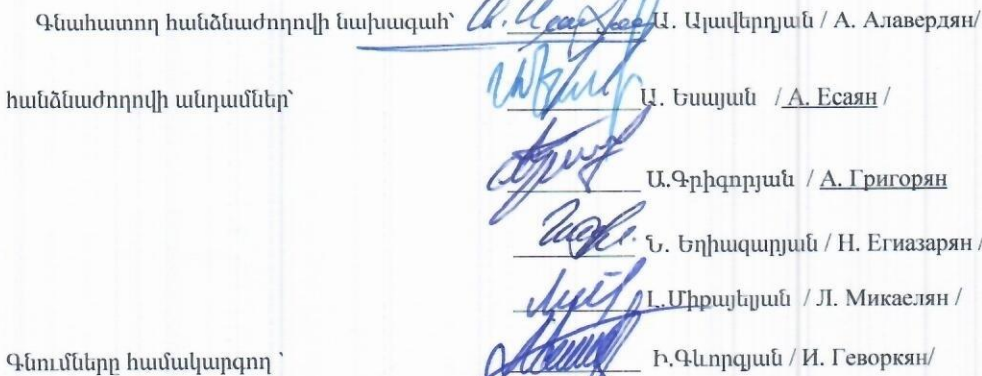 Գնահատող հանձնաժողովի նախագահ՝ Ա. Ալավերդյան / А. Алавердян/
հանձնաժողովի անդամներ՝ Ա. Եսայան / А. Есаян /
Ա.Գրիգորյան / А. Григорян
Ն. Եղիազարյան / Н. Егиазарян /
Լ.Միքայելյան / Л. Микаелян /
Գնումները համակարգող ՝ Ի.Գևորգյան / И. Геворкян/